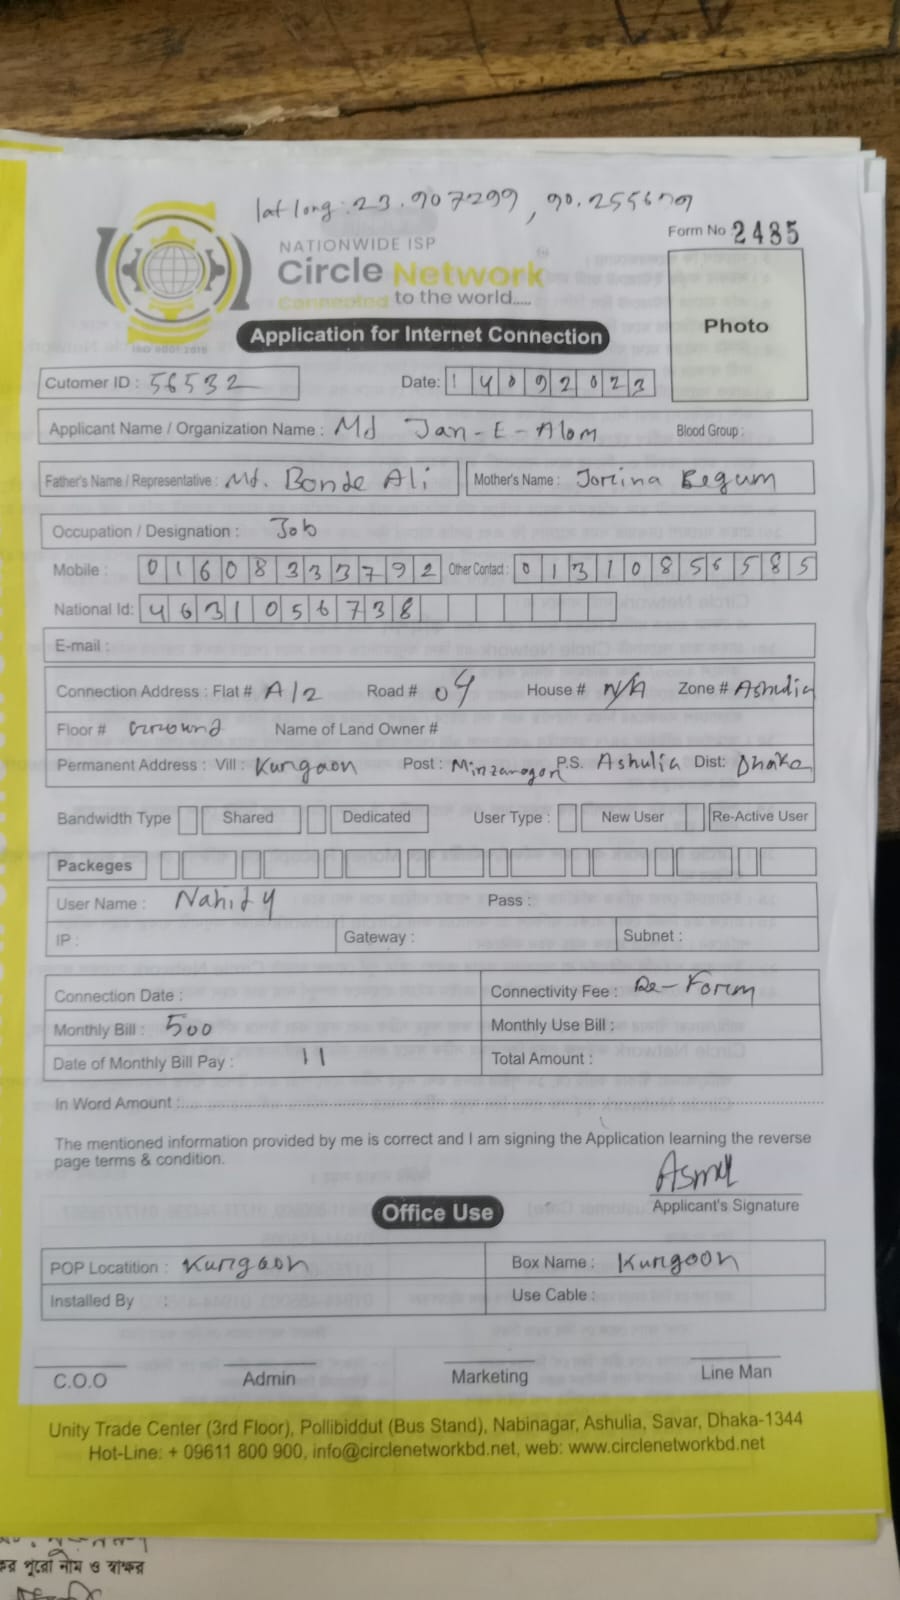 lat long : 23.907299, 90.255679
Form No 2485
NATIONWIDE ISP
Circle Network
Connected to the world.....
Photo
Application for Internet Connection
ISO 9001:2015
Cutomer ID : 56532 Date: 14092023
Applicant Name / Organization Name : Md Jan-E-Alom Blood Group :
Father's Name / Representative : Md. Bonde Ali Mother's Name : Jorina Begum
Occupation / Designation : Job
Mobile : 01608333792 Other Contact : 01310856585
National Id: 4631056738
E-mail :
Connection Address : Flat # A/2 Road # 04 House # N/A Zone # Ashulia
Floor # Ground Name of Land Owner #
Permanent Address : Vill : Kurgaon Post : Mirzanagar P.S. Ashulia Dist: Dhaka
Bandwidth Type Shared Dedicated User Type : New User Re-Active User
Packeges
User Name : Nahidy Pass :
IP : Gateway : Subnet :
Connection Date : Connectivity Fee : Re-Form
Monthly Bill : 500 Monthly Use Bill :
Date of Monthly Bill Pay : 11 Total Amount :
In Word Amount :
The mentioned information provided by me is correct and I am signing the Application learning the reverse
page terms & condition.
Applicant's Signature
Office Use
POP Locatition : Kurgaon Box Name : Kurgaon
Installed By : Use Cable :
C.O.O Admin Marketing Line Man
Unity Trade Center (3rd Floor), Pollibiddut (Bus Stand), Nabinagar, Ashulia, Savar, Dhaka-1344
Hot-Line: + 09611 800 900, info@circlenetworkbd.net, web: www.circlenetworkbd.net
পুরো নাম ও স্বাক্ষর